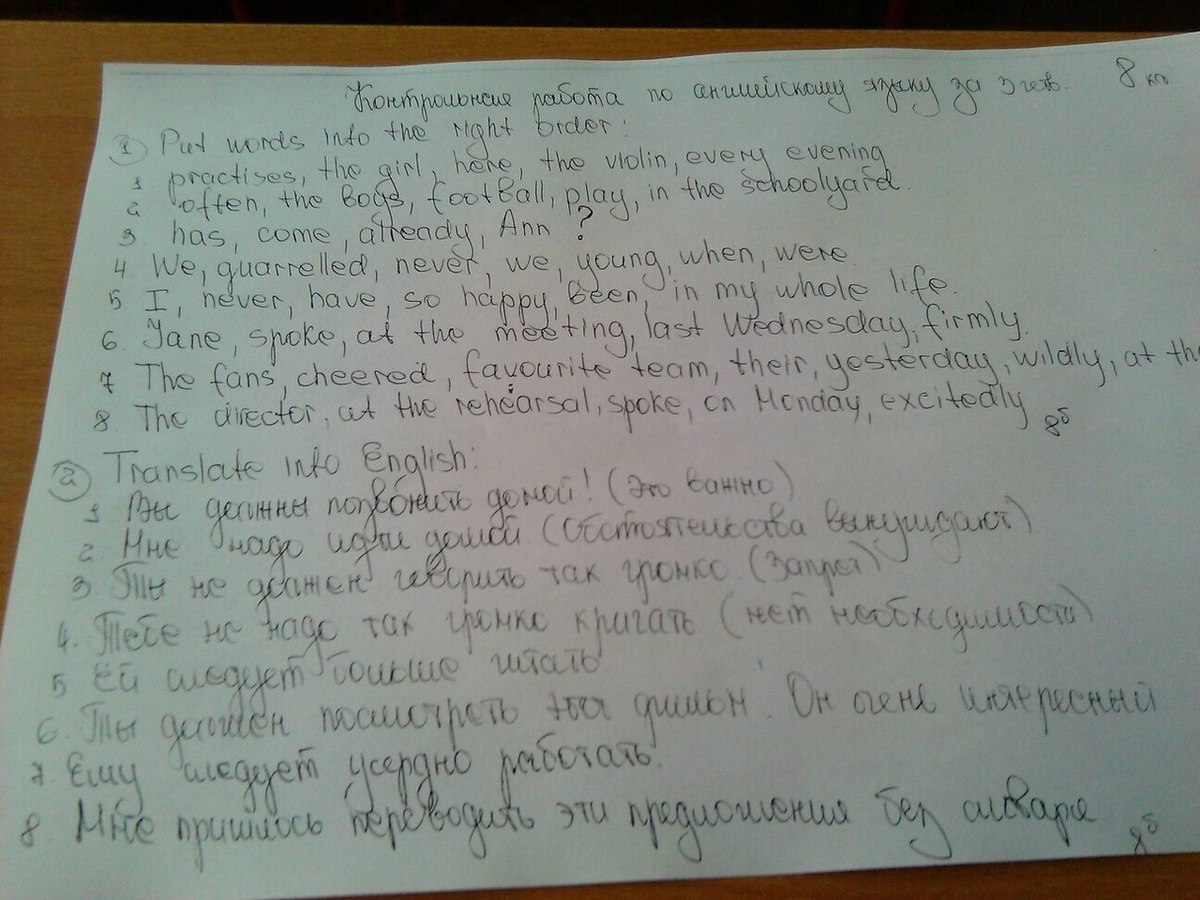 Контрольная работа по английскому языку за 3 четв. 8 кл
1 Put words into the right order:
1 practises, the girl, here, the violin, every evening
2 often, the boys, football, play, in the schoolyard.
3 has, come, already, Ann ?
4 We, quarrelled, never, we, young, when, were
5 I, never, have, so happy, been, in my whole life.
6. Jane, spoke, at the meeting, last Wednesday, firmly.
7 The fans, cheered, favourite team, their, yesterday, wildly, at the
8 The director, at the rehearsal, spoke, on Monday, excitedly 8б
2 Translate into English:
1 Вы должны позвонить домой! (Это важно)
2 Мне надо идти домой (Обстоятельства вынуждают)
3 Ты не должен говорить так громко (Запрет)
4. Тебе не надо так громко кричать (нет необходимости)
5 Ей следует больше читать
6. Ты должен посмотреть этот фильм. Он очень интересный
7. Ему следует усердно работать.
8 Мне пришлось переводить эти предложения без словаря 8б